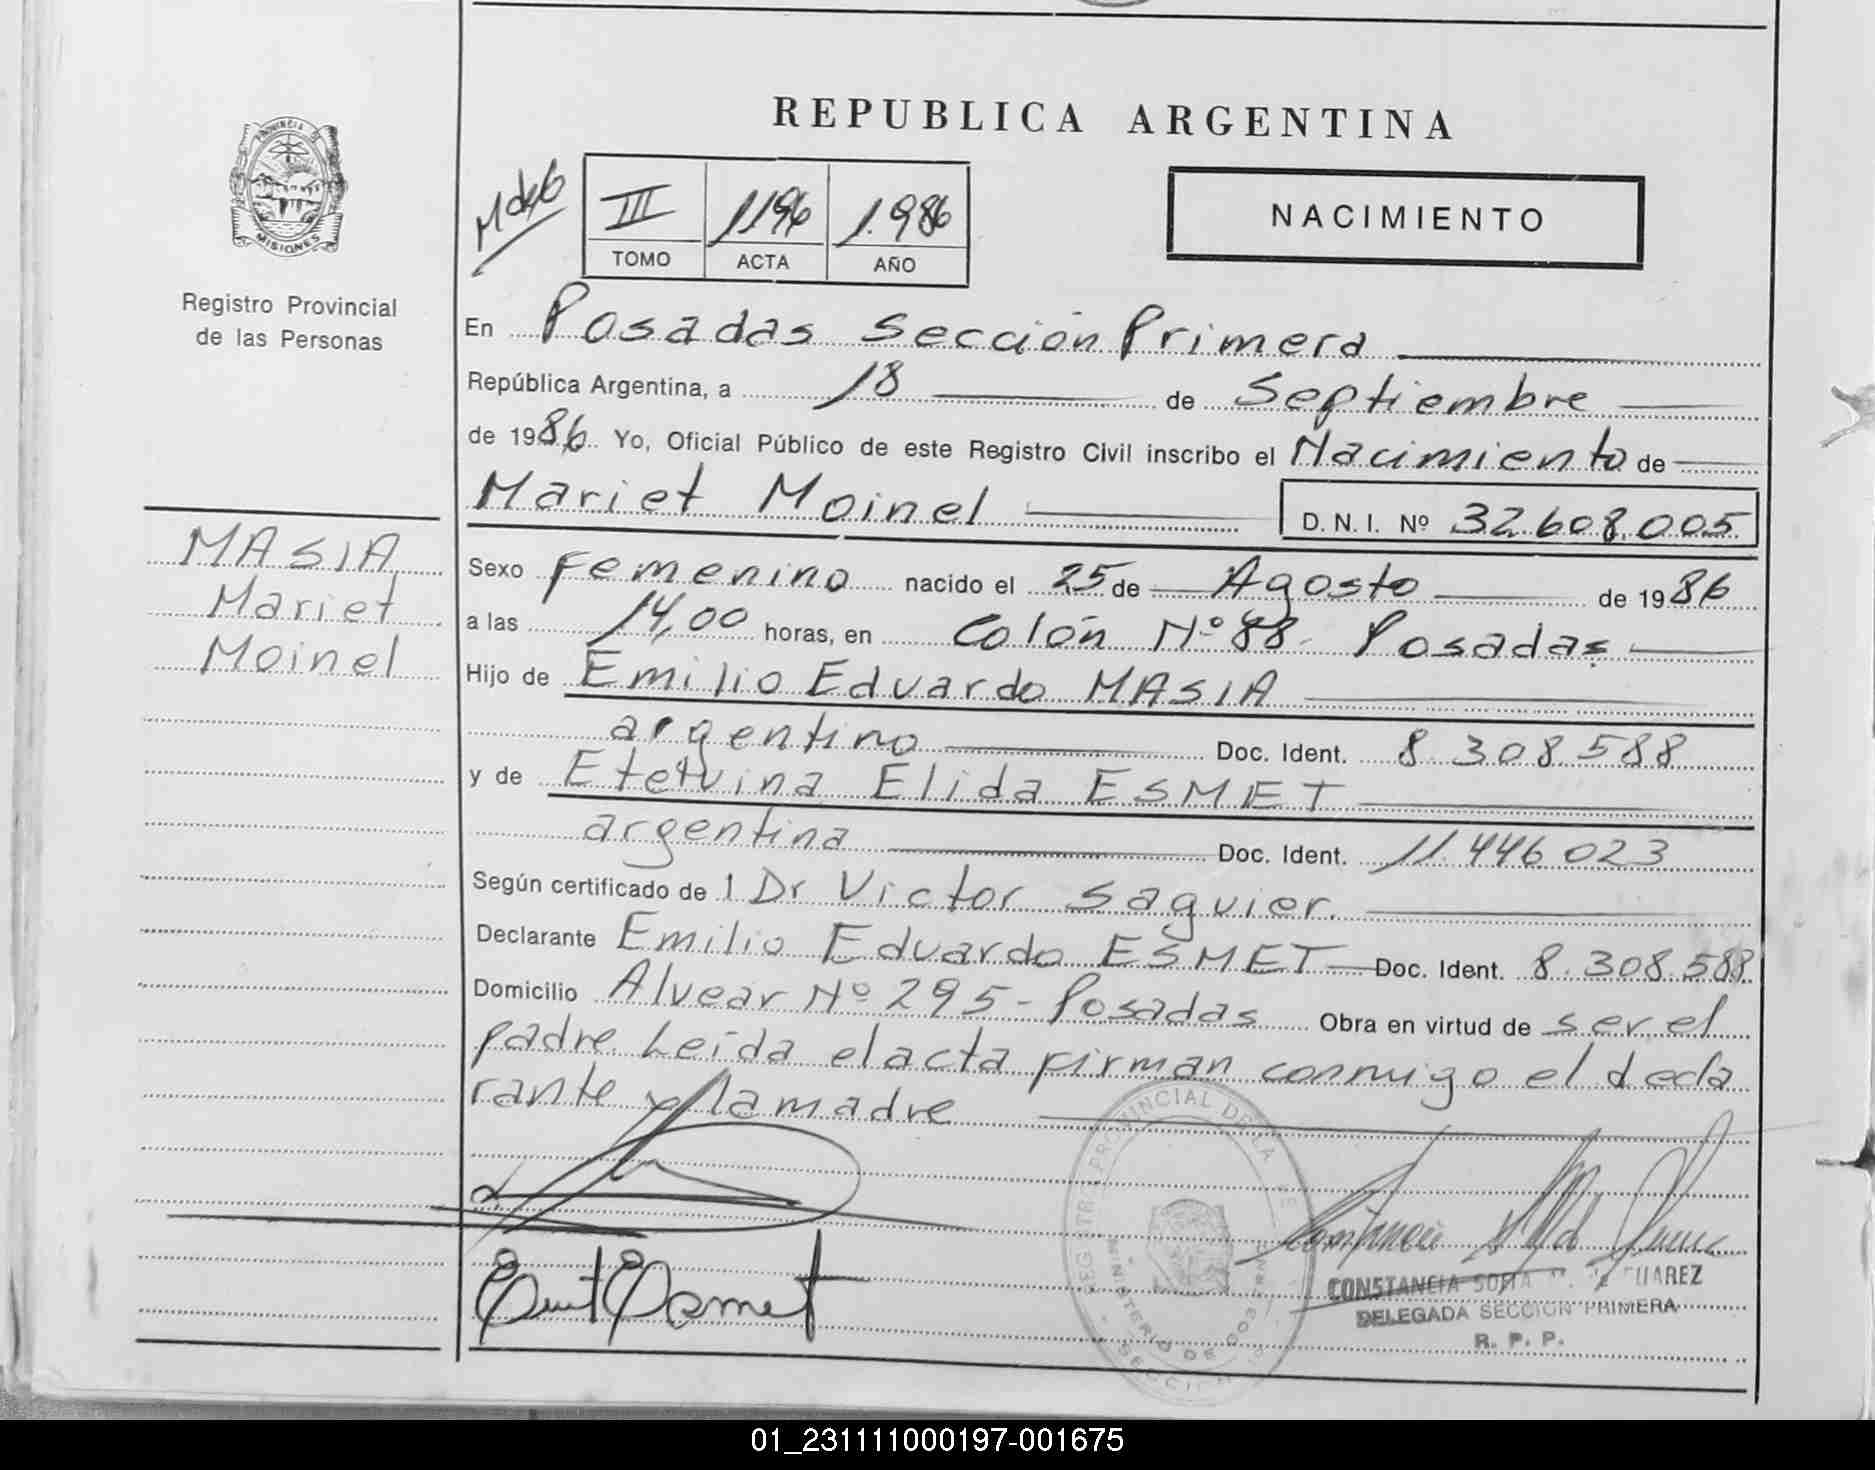 REPUBLICA ARGENTINA
PROVINCIA DE
MISIONES
Registro Provincial
de las Personas
III 1196 1.986
TOMO ACTA AÑO
NACIMIENTO
En Posadas Sección Primera
República Argentina, a 18 de Septiembre
de 1986 Yo, Oficial Público de este Registro Civil inscribo el Nacimiento de
Mariet Moinel D. N. I. Nº 32.608.005
MASIA
Mariet
Moinel
Sexo Femenino nacido el 25 de Agosto de 1986
a las 14,00 horas, en Colón Nº 88- Posadas
Hijo de Emilio Eduardo MASIA
argentino Doc. Ident. 8.308.588
y de Etelvina Elida ESMET
argentina Doc. Ident. 11.446.023
Según certificado de 1 Dr Victor Saguier.
Declarante Emilio Eduardo ESMET Doc. Ident. 8.308.588
Domicilio Alvear Nº 295- Posadas Obra en virtud de ser el
padre Leída el acta firman conmigo el decla
rante y la madre
REGISTRO PROVINCIAL DE LA
MINISTERIO DE
CONSTANCIA SOFIA SUAREZ
DELEGADA SECCION PRIMERA
R. P. P.
01_231111000197-001675